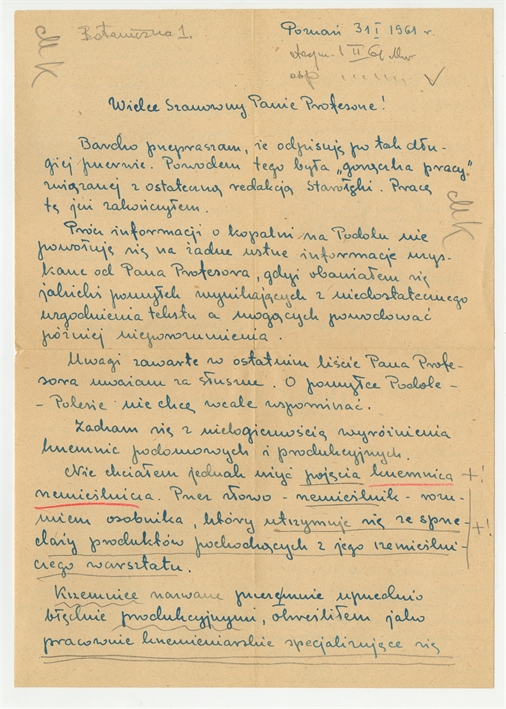 Botaniczna 1.
Poznań 31 I 1961 r.
1 II 61
odp
Wielce Szanowny Panie Profesorze!
Bardzo przepraszam, że odpisuję po tak dłu-
giej przerwie. Powodem tego była „gorączka pracy"
związanej z ostateczną redakcją Starołęki. Pracę
tę już zakończyłem.
Prócz informacji o kopalni na Podolu nie
powołuję się na żadne ustne informacje uzys-
kane od Pana Profesora, gdyż obawiałem się
jakichś pomyłek wynikających z niedostatecznego
uzgodnienia tekstu a mogących powodować
później nieporozumienia.
Uwagi zawarte w ostatnim liście Pana Profe-
sora uważam za słuszne. O pomyłce Podole -
- Polesie nie chcę wcale wspominać.
Zgadzam się z nielogicznością wyróżnienia
krzemnic przydomowych i produkcyjnych.
Nie chciałem jednak użyć pojęcia krzemnica +!
rzemieślnicza. Przez słowo - rzemieślnik - rozu-
miem osobnika, który utrzymuje się ze sprze- +!
daży produktów pochodzących z jego rzemieślni-
czego warsztatu.
Krzemnice nazwane przeze mnie uprzednio
błędnie produkcyjnymi, określiłem jako
pracownie krzemieniarskie specjalizujące się